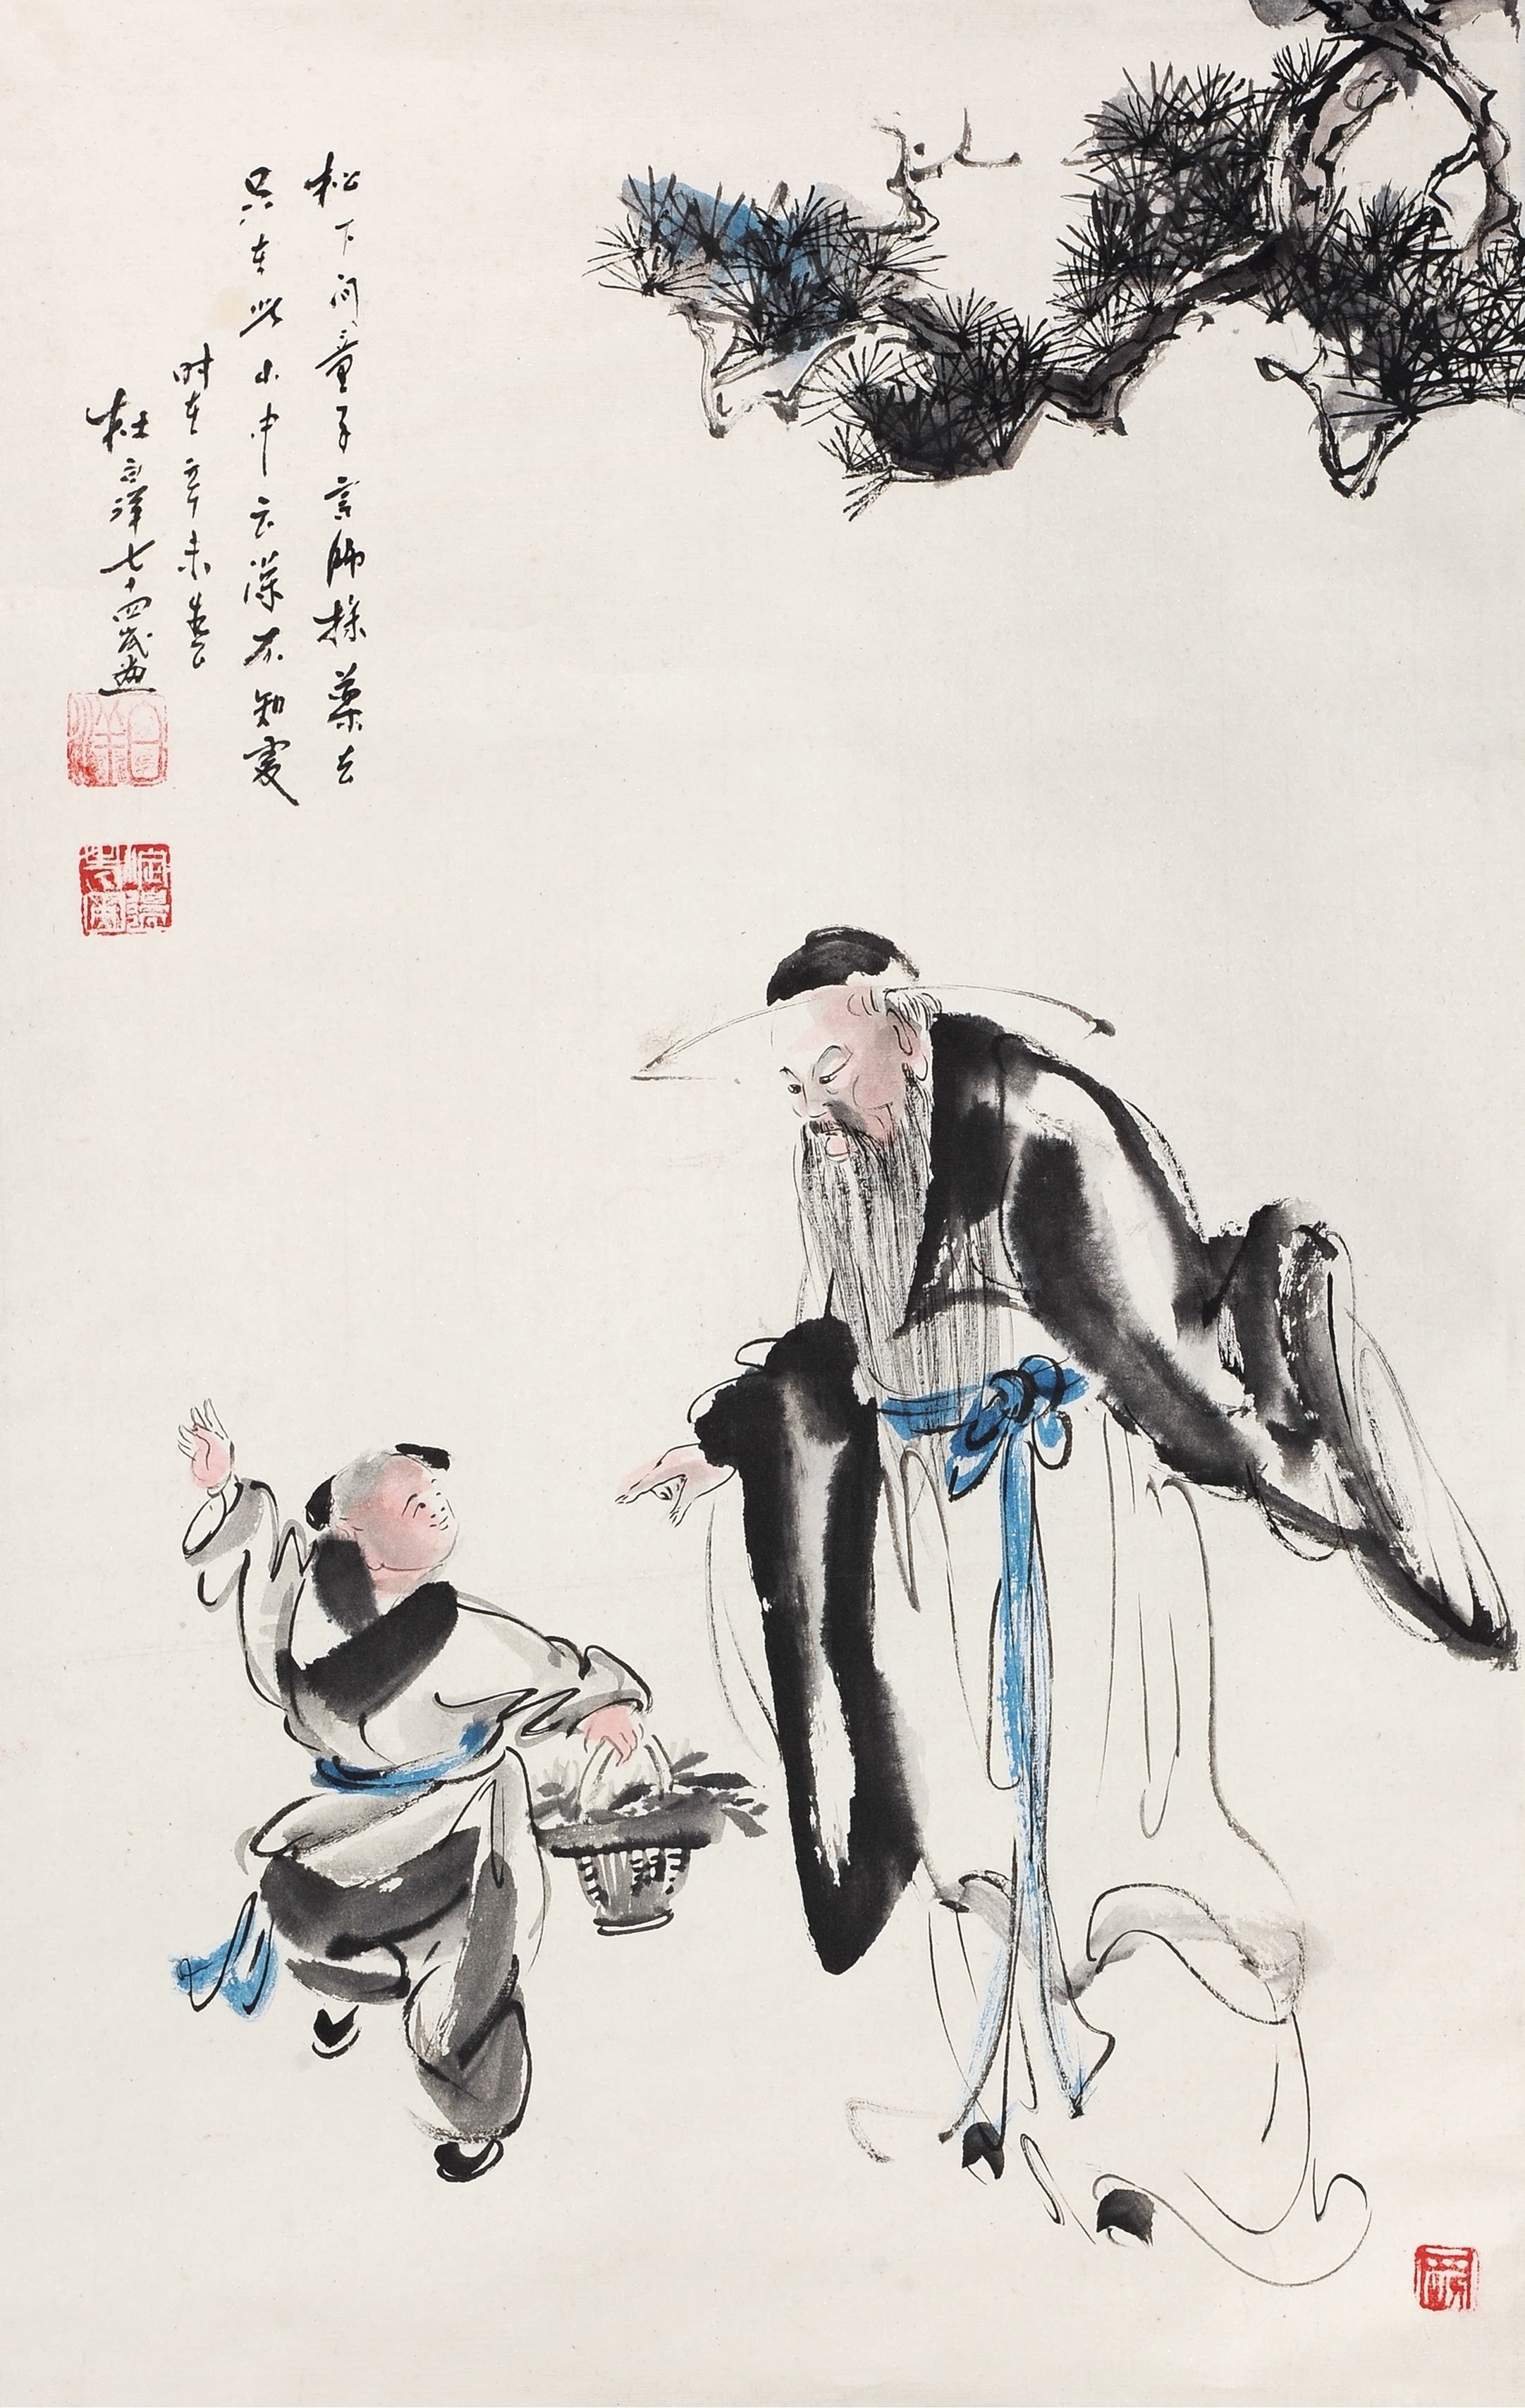 松下问童子言师採药去
只在此山中云深不知處
时在辛未春
杜宗泽七十四岁画